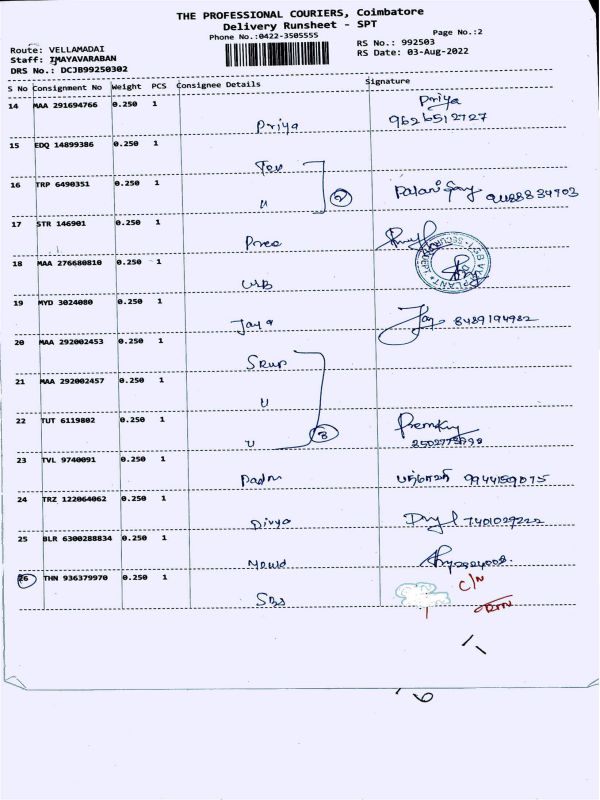 THE PROFESSIONAL COURIERS, Coimbatore
Delivery Runsheet - SPT
Phone No.:0422-3505555
Page No.:2
Route: VELLAMADAI
RS No.: 992503
Staff: IMAYAVARABAN
RS Date: 03-Aug-2022
DRS No.: DCJB99250302
S No Consignment No Weight PCS Consignee Details Signature
14 MAA 291694766 0.250 1
Priya Priya
9626512727
15 EDQ 14899386 0.250 1
16 TRP 6490351 0.250 1
u 2
17 STR 146901 0.250 1
18 MAA 276680810 0.250 1
19 MYD 3024080 0.250 1
Jaya Jay 8489194982
20 MAA 292002453 0.250 1
21 MAA 292002457 0.250 1
u
22 TUT 6119802 0.250 1
u 3
23 TVL 9740091 0.250 1
24 TRZ 122064062 0.250 1
Divya 7401029222
25 BLR 6300288834 0.250 1
Mould
26 THN 936379970 0.250 1
C/N